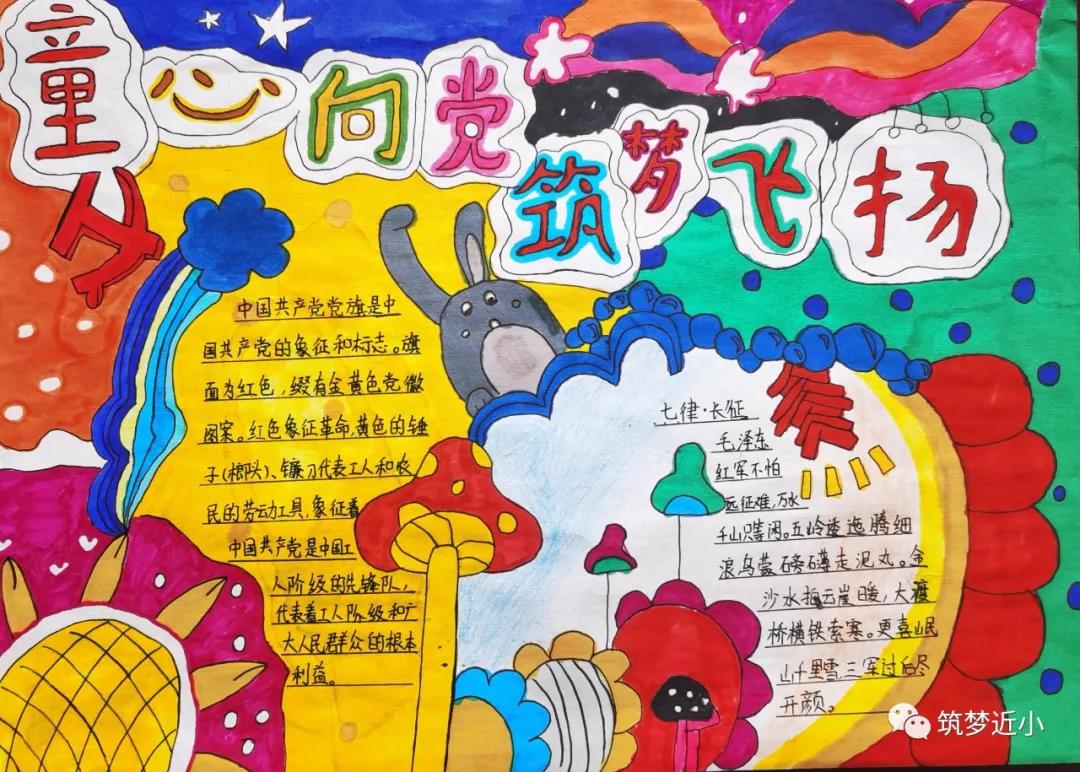 童心向党
筑梦飞扬
中国共产党党旗是中
国共产党的象征和标志。旗
面为红色，缀有金黄色党徽
图案。红色象征革命，黄色的锤
子(榔头)、镰刀代表工人和农
民的劳动工具，象征着
中国共产党是中国工
人阶级的先锋队，
代表着工人阶级和广
大人民群众的根本
利益。
七律·长征
毛泽东
红军不怕
远征难，万水
千山只等闲。五岭逶迤腾细
浪乌蒙磅礴走泥丸。金
沙水拍云崖暖，大渡
桥横铁索寒。更喜岷
山千里雪，三军过后尽
开颜。
筑梦近小